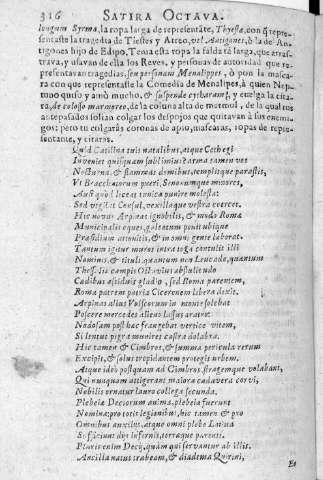 316 SATIRA OCTAVA.
longum Syrma, la ropa larga de representāte, Thyestæ, con q̄ repre-
sentaste la tragedia de Tiestes y Atreo, vel Antigones, ò la de An-
tigones hijo de Edipo. Tenia esta ropa la falda tā larga, que arras-
trava, y usavan de ella los Reyes, y personas de autoridad que re-
presentavan tragedias, seu personam Menalippes, ò pon la masca-
ra con que representaste la Comedia de Menalipes, à quien Nep-
tuno quiso y amò mucho, & suspende cytharam, y cuelga la citha-
ra, de colosso marmoreo, de la coluna alta de marmol, de la qual tus
antepasados solian colgar los despojos que quitavan à sus enemi-
gos: pero tu colgaràs coronas de apio, mascaras, ropas de repre-
sentante, y citaras.
Quid Catilina tuis natalibus, atque Cethegi
Inveniet quisquam sublimius? arma tamen vos
Nocturna, & flammas domibus, templisque parastis,
Vt Braccatorum pueri, Senonumque minores,
Ausi quod liceat tunica punire molesta:
Sed vigilat Consul, vexillaque vestra coercet.
Hic novus Arpinas ignobilis, & modo Roma
Municipalis eques, galeatum ponit ubique
Præsidium attonitis, & in omni gente laborat.
Tantum igitur muros intra toga contulit illi
Nominis, & tituli, quantum non Leucade, quantum
Thessaliæ campis Octavius abstulit udo
Cædibus assiduis gladio, sed Roma parentem,
Roma patrem patriæ Ciceronem libera dixit.
Arpinas alius Volscorum in monte solebat
Poscere mercedes alieno lassus aratro:
Nodosam post hæc frangebat vertice vitem,
Si lentus pigra muniret castra dolabra.
Hic tamen & Cimbros, & summa pericula rerum
Excipit, & solus trepidantem protegit urbem.
Atque ideo postquam ad Cimbros, stragemque volabant,
Qui nunquam attigerant maiora cadavera corvi,
Nobilis ornatur lauro collega secunda.
Plebeiæ Deciorum animæ, plebeia fuerunt
Nomina: pro totis legionibus, hic tamen & pro
Omnibus auxiliis, atque omni plebe Latina
Sufficiunt dijs infernis, terræque parenti.
Pluris enim Decij, quàm qui servantur ab illis.
Ancilla natus trabeam, & diadema Quirini,
Et